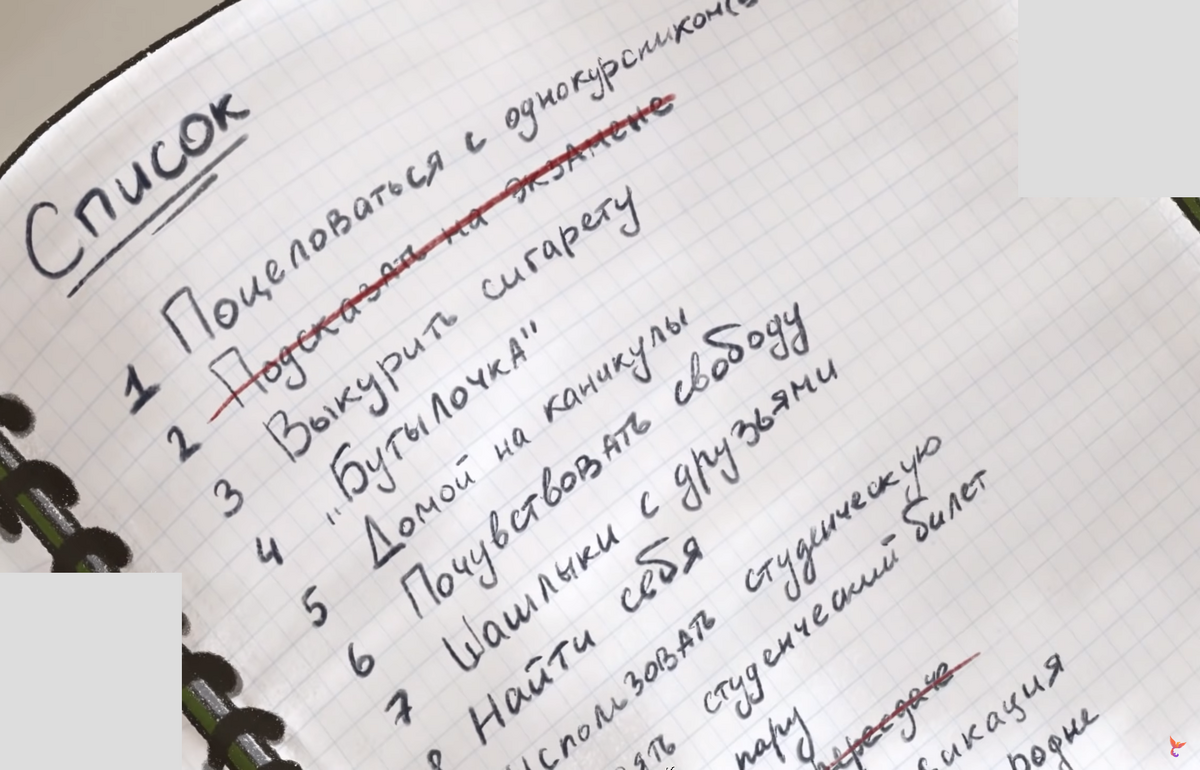 Список
1 Поцеловаться с однокурсником(
2 Подсказать на экзамене
3 Выкурить сигарету
4 "Бутылочка"
5 Домой на каникулы
6 Почувствовать свободу
7 Шашлыки с друзьями
8 Найти себя
студенческую
студенческий билет
пару